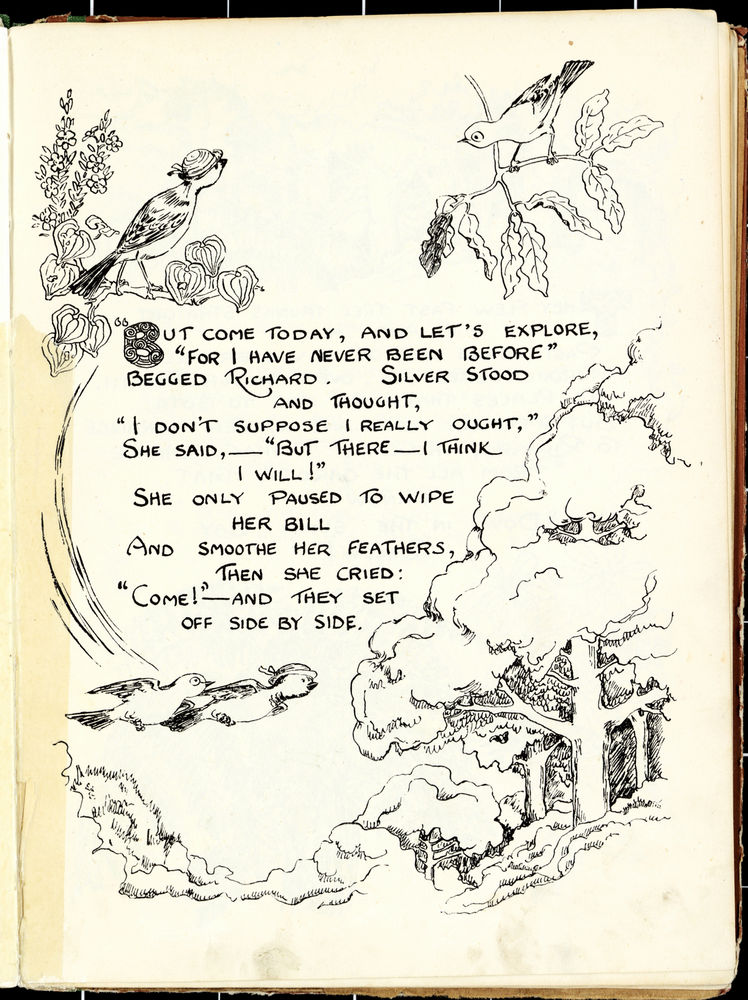 “BUT COME TODAY, AND LET'S EXPLORE,
“FOR I HAVE NEVER BEEN BEFORE”
BEGGED RICHARD. SILVER STOOD
AND THOUGHT,
“I DON'T SUPPOSE I REALLY OUGHT,”
SHE SAID,—“BUT THERE—I THINK
I WILL!”
SHE ONLY PAUSED TO WIPE
HER BILL
AND SMOOTHE HER FEATHERS,
THEN SHE CRIED:
“COME!”—AND THEY SET
OFF SIDE BY SIDE.